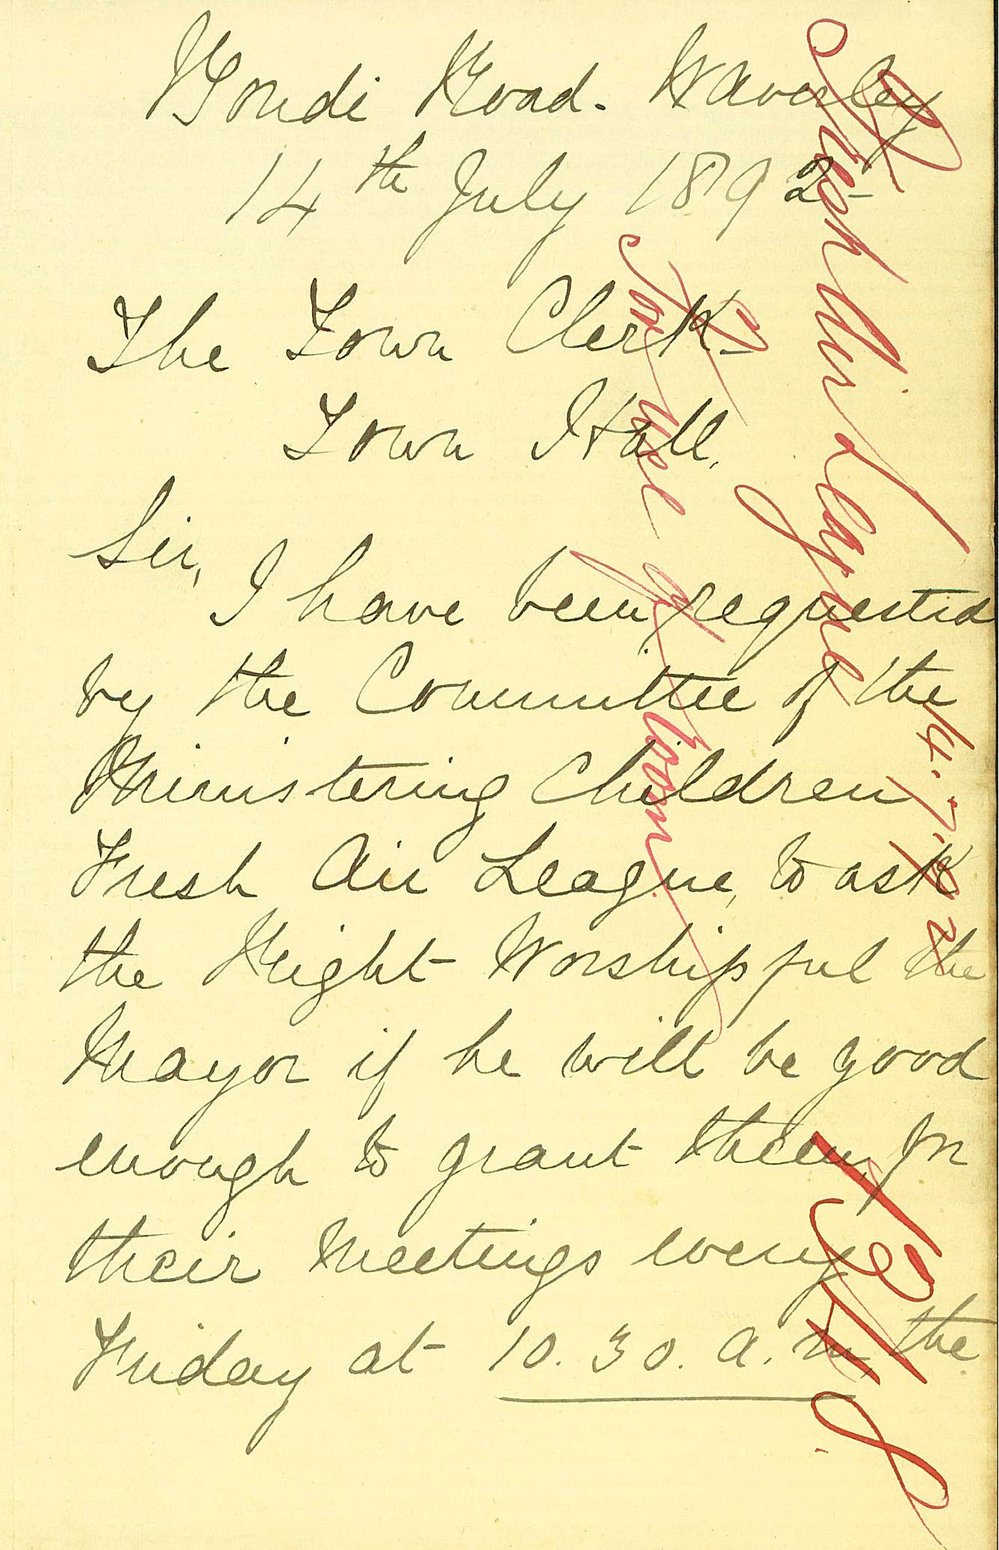 Bondi Road. Waverley
14th July 1892-
The Town Clerk-
Town Hall.
Sir,
I have been requested
by the Committee of the
Ministering Children
Fresh Air League, to ask
the Right Worshipful the
Mayor if he will be good
enough to grant them, for
their Meetings every
Friday at 10.30. a.m, the
Fresh Air League
For use of room
14.7.92